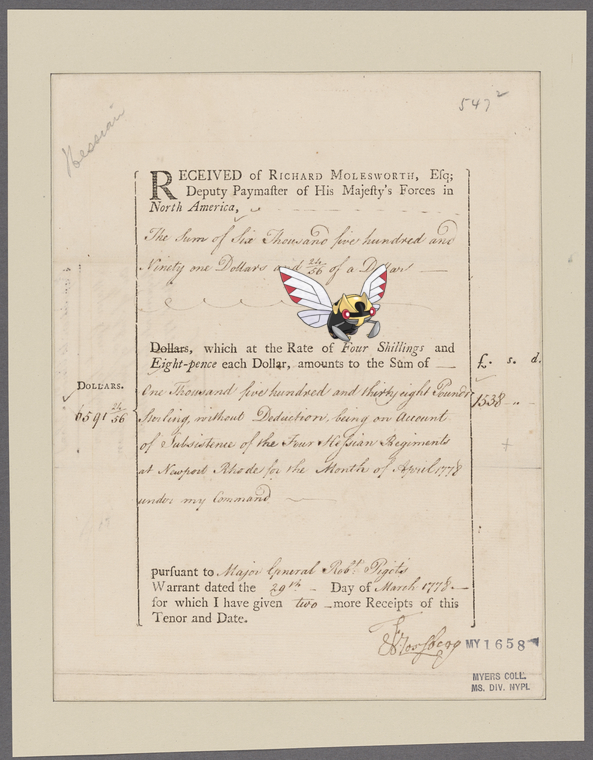 547 2
Hessian
RECEIVED of RICHARD MOLESWORTH, Eſq;
Deputy Paymaſter of His Majeſty's Forces in
North America,
The Sum of Six Thousand five hundred and
Ninety one Dollars and 24/56 of a Dollar
Dollars, which at the Rate of Four Shillings and
Eight-pence each Dollar, amounts to the Sum of
£. s. d.
DOLLARS.
6591 24/56
One Thousand five hundred and thirty eight Pounds
1538 " "
Sterling, without Deduction, being on Account
of Subsistence of the Four Hessian Regiments
at Newport Rhode for the Month of April 1778
under my Command
pursuant to Major General Robt. Pigot's
Warrant dated the 29th Day of March 1778
for which I have given two more Receipts of this
Tenor and Date.
MY 1658
MYERS COLL.
MS. DIV. NYPL